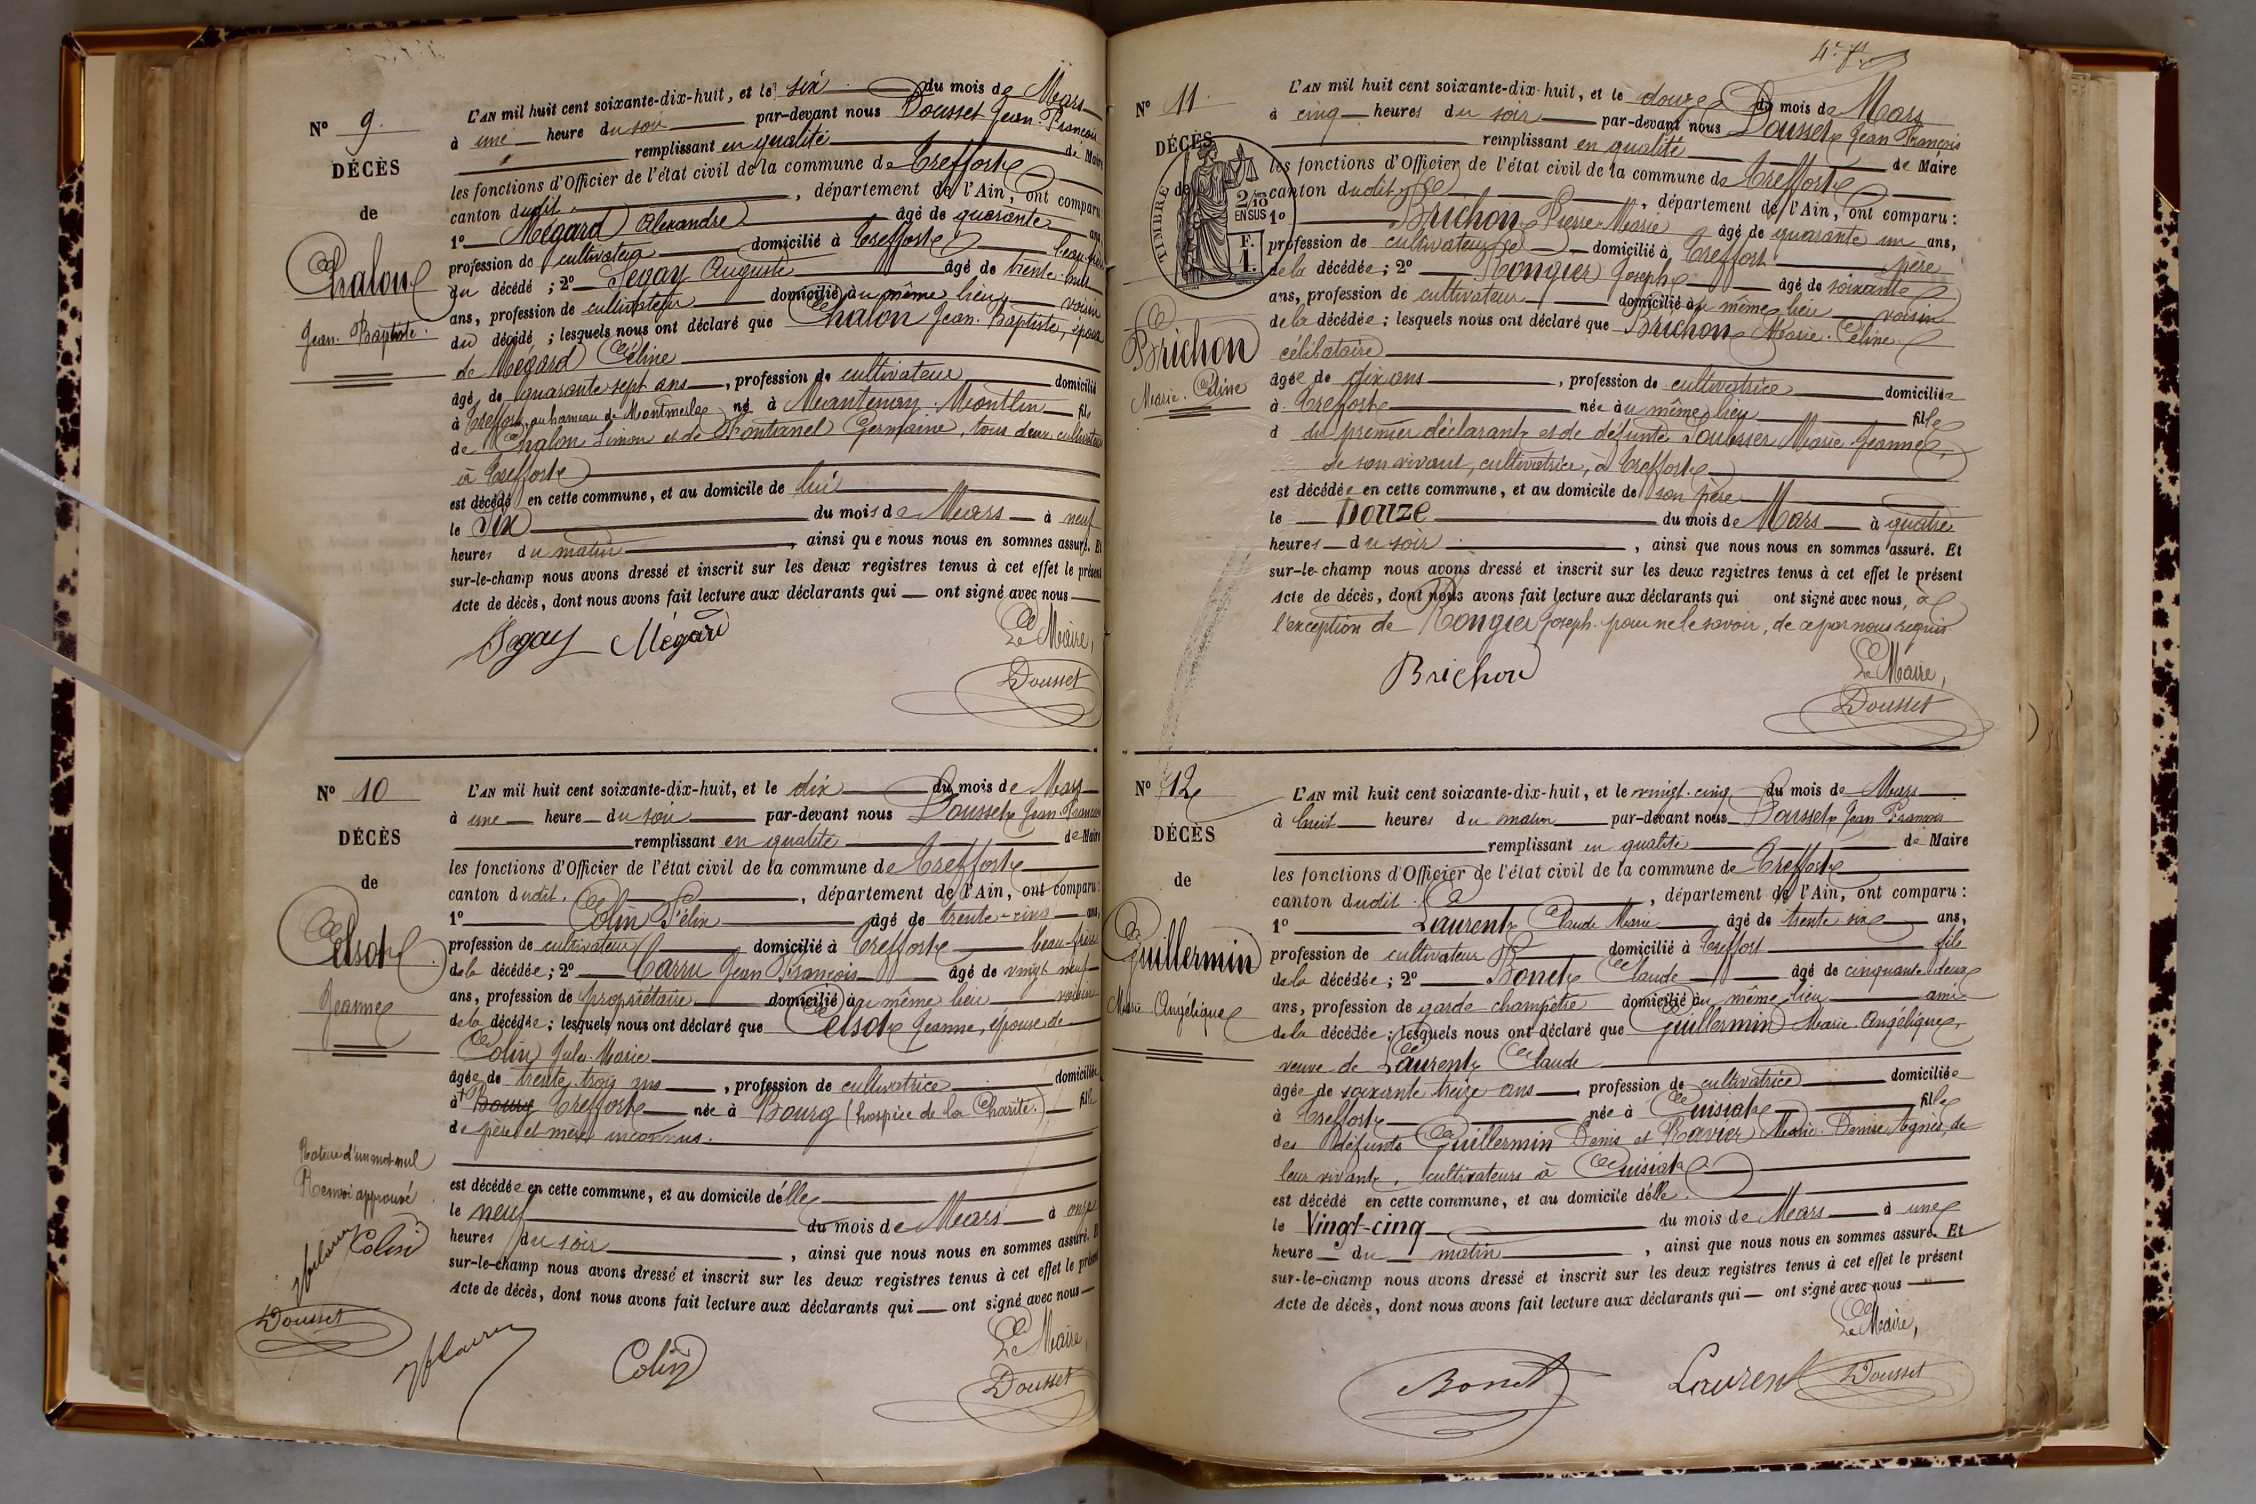 Nº 9.
DÉCÈS
de
Chalon
Jean-Baptiste.
L'AN mil huit cent soixante-dix-huit, et le six du mois de Mars
à une heure du soir par-devant nous Dousset Jean-François
remplissant en qualité de Maire
les fonctions d'Officier de l'état civil de la commune de Treffort
canton dudit, département de l'Ain, ont comparu:
1º Mégard Alexandre âgé de quarante ans,
profession de cultivateur domicilié à Treffort beau-frère
du décédé; 2º Segay Auguste âgé de trente-huit
ans, profession de cultivateur domicilié au même lieu voisin
du décédé; lesquels nous ont déclaré que Chalon Jean-Baptiste, époux
de Mégard Céline
âgé de quarante sept ans, profession de cultivateur domicilié
à Treffort, au hameau de Montmerle né à Mantenay-Montlin fils
de Chalon Simon et de Fontanel Germaine, tous deux cultivateurs
à Treffort
est décédé en cette commune, et au domicile de lui
le Six du mois de Mars à neuf
heures du matin, ainsi que nous nous en sommes assuré. Et
sur-le-champ nous avons dressé et inscrit sur les deux registres tenus à cet effet le présent
Acte de décès, dont nous avons fait lecture aux déclarants qui ont signé avec nous
Segay Mégard
Le Maire,
Dousset
Nº 10
DÉCÈS
de
Celsot
Jeanne
L'AN mil huit cent soixante-dix-huit, et le dix du mois de Mars
à une heure du soir par-devant nous Dousset Jean François
remplissant en qualité de Maire
les fonctions d'Officier de l'état civil de la commune de Treffort
canton dudit, département de l'Ain, ont comparu:
1º Colin Félix âgé de trente-cinq ans,
profession de cultivateur domicilié à Treffort beau-frère
de la décédée; 2º Jean François âgé de vingt neuf
ans, profession de propriétaire domicilié au même lieu voisin
de la décédée; lesquels nous ont déclaré que Celsot Jeanne, épouse de
Colin Jules-Marie
âgée de trente-trois ans, profession de cultivatrice domiciliée
à Bourg Treffort née à Bourg (hospice de la Charité.) fille
de père et mère inconnus.
est décédée en cette commune, et au domicile d'elle
le neuf du mois de Mars à onze
heures du soir, ainsi que nous nous en sommes assuré. Et
sur-le-champ nous avons dressé et inscrit sur les deux registres tenus à cet effet le présent
Acte de décès, dont nous avons fait lecture aux déclarants qui ont signé avec nous
Rature d'un mot nul
Renvoi approuvé
Colin
Dousset
Colin
Le Maire,
Dousset
Nº 11.
DÉCÈS
de
TIMBRE
2/10
EN SUS
F.
1.
Brichon
Marie-Céline
L'AN mil huit cent soixante-dix-huit, et le douze du mois de Mars
à cinq heures du soir par-devant nous Dousset Jean François
remplissant en qualité de Maire
les fonctions d'Officier de l'état civil de la commune de Treffort
canton dudit, département de l'Ain, ont comparu:
1º Brichon Pierre-Marie âgé de quarante un ans,
profession de cultivateur domicilié à Treffort père
de la décédée; 2º Rongier Joseph âgé de soixante
ans, profession de cultivateur domicilié au même lieu voisin
de la décédée; lesquels nous ont déclaré que Brichon Marie-Céline
célibataire
âgée de dix ans, profession de cultivatrice domiciliée
à Treffort née au même lieu fille
d du premier déclarant et de défunte Marie-Jeanne,
de son vivant, cultivatrice, à Treffort
est décédée en cette commune, et au domicile de son père
le Douze du mois de Mars à quatre
heures du soir, ainsi que nous nous en sommes assuré. Et
sur-le-champ nous avons dressé et inscrit sur les deux registres tenus à cet effet le présent
Acte de décès, dont nous avons fait lecture aux déclarants qui ont signé avec nous, à
l'exception de Rongier Joseph pour ne le savoir, de ce par nous requis
Brichon
Le Maire,
Dousset
Nº 12
DÉCÈS
de
Guillermin
Marie Angélique
L'AN mil huit cent soixante-dix-huit, et le vingt-cinq du mois de Mars
à huit heures du matin par-devant nous Dousset Jean François
remplissant en qualité de Maire
les fonctions d'Officier de l'état civil de la commune de Treffort
canton dudit, département de l'Ain, ont comparu:
1º Laurent Claude Marie âgé de trente six ans,
profession de cultivateur domicilié à Treffort fils
de la décédée; 2º Bonet Claude âgé de cinquante deux
ans, profession de garde champêtre domicilié au même lieu ami
de la décédée; lesquels nous ont déclaré que Guillermin Marie-Angélique,
veuve de Laurent Claude
âgée de soixante treize ans, profession de cultivatrice domiciliée
à Treffort née à Cuisiat fille
des défunts Guillermin Denis et Ravier Marie-Denise Agnès, de
leur vivant, cultivateurs à Cuisiat
est décédé en cette commune, et au domicile d'elle.
le Vingt-cinq du mois de Mars à une
heure du matin, ainsi que nous nous en sommes assuré. Et
sur-le-champ nous avons dressé et inscrit sur les deux registres tenus à cet effet le présent
Acte de décès, dont nous avons fait lecture aux déclarants qui ont signé avec nous
Le Maire,
Bonet Laurent Dousset